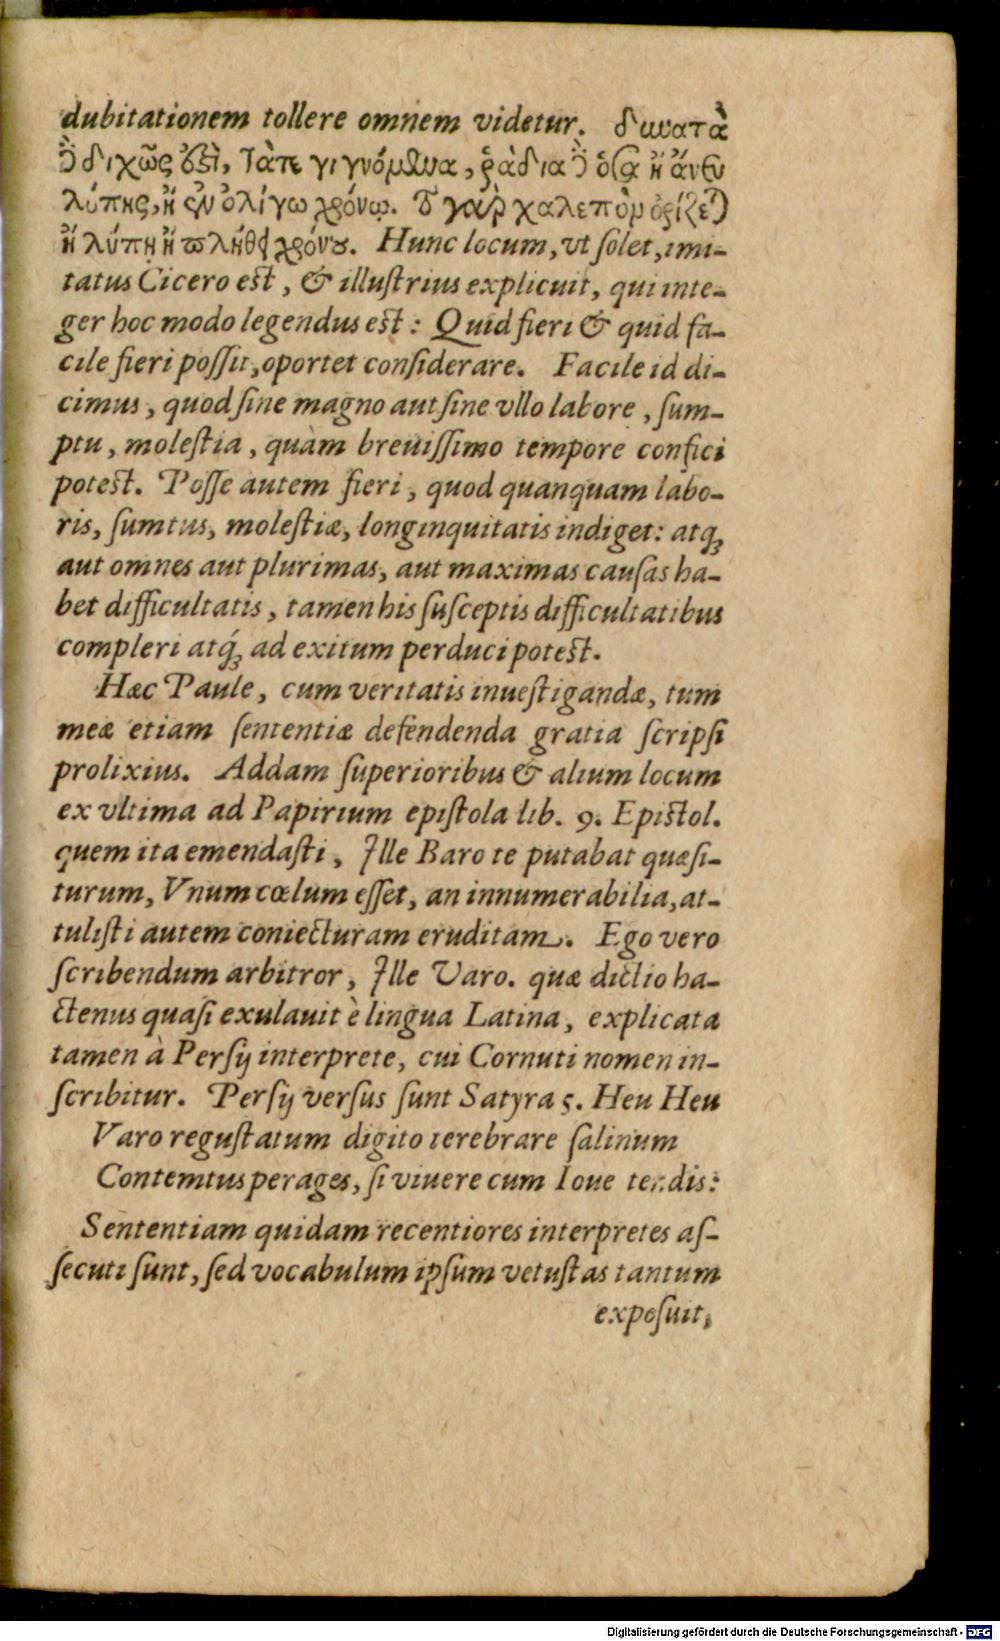 dubitationem tollere omnem videtur. δυνατὰ
δὲ διχῶς ἐστὶ, τά τε γιγνόμενα, ῥᾴδια δὲ ὅσα ἢ ἄνευ
λύπης, ἢ ἐν ὀλίγῳ χρόνῳ. τὸ γὰρ χαλεπὸν ὁρίζεται
ἢ λύπῃ ἢ πλήθει χρόνου. Hunc locum, vt ſolet, imi-
tatus Cicero est, & illuſtrius explicuit, qui inte-
ger hoc modo legendus est: Quid fieri & quid fa-
cile fieri poſſit, oportet conſiderare. Facile id di-
cimus, quod ſine magno aut ſine vllo labore, ſum-
ptu, moleſtia, quàm breuiſſimo tempore confici
potest. Poſſe autem fieri, quod quanquam labo-
ris, ſumtus, moleſtiæ, longinquitatis indiget: atq;
aut omnes aut plurimas, aut maximas cauſas ha-
bet difficultatis, tamen his ſuſceptis difficultatibus
compleri atq́; ad exitum perduci potest.
Hæc Paule, cum veritatis inueſtigandæ, tum
meæ etiam ſententiæ defendenda gratia ſcripſi
prolixius. Addam ſuperioribus & alium locum
ex vltima ad Papirium epiſtola lib. 9. Epistol.
quem ita emendaſti, Ille Baro te putabat quæſi-
turum, Vnum cœlum eſſet, an innumerabilia, at-
tuliſti autem coniecturam eruditam. Ego vero
ſcribendum arbitror, Ille Varo. quæ dictio ha-
ctenus quaſi exulauit è lingua Latina, explicata
tamen à Perſij interprete, cui Cornuti nomen in-
ſcribitur. Perſij verſus ſunt Satyra 5. Heu Heu
Varo reguſtatum digito terebrare ſalinum
Contemtus perages, ſi viuere cum Ioue tendis:
Sententiam quidam recentiores interpretes aſ-
ſecuti ſunt, ſed vocabulum ipſum vetuſtas tantum
expoſuit,
Digitalisierung gefördert durch die Deutsche Forschungsgemeinschaft - DFG